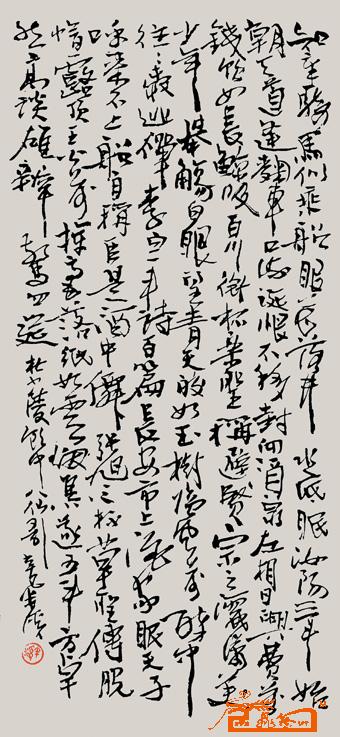 知章骑马似乘船眼花落井水底眠汝阳三斗始
朝天道逢麹車口流涎恨不移封向酒泉左相日興費萬
錢飲如長鯨吸百川銜杯樂聖稱避賢宗之瀟灑美
少年舉觴白眼望青天皎如玉樹臨風前
醉中
往往愛逃禪李白一斗詩百篇長安市上酒家眠天子
呼來不上船自稱臣是酒中僊張旭三杯草聖傳脫
帽露頂王公前揮毫落紙如雲煙焦遂五斗方卓
然高談雄辯驚四筵杜少陵飲中八仙歌